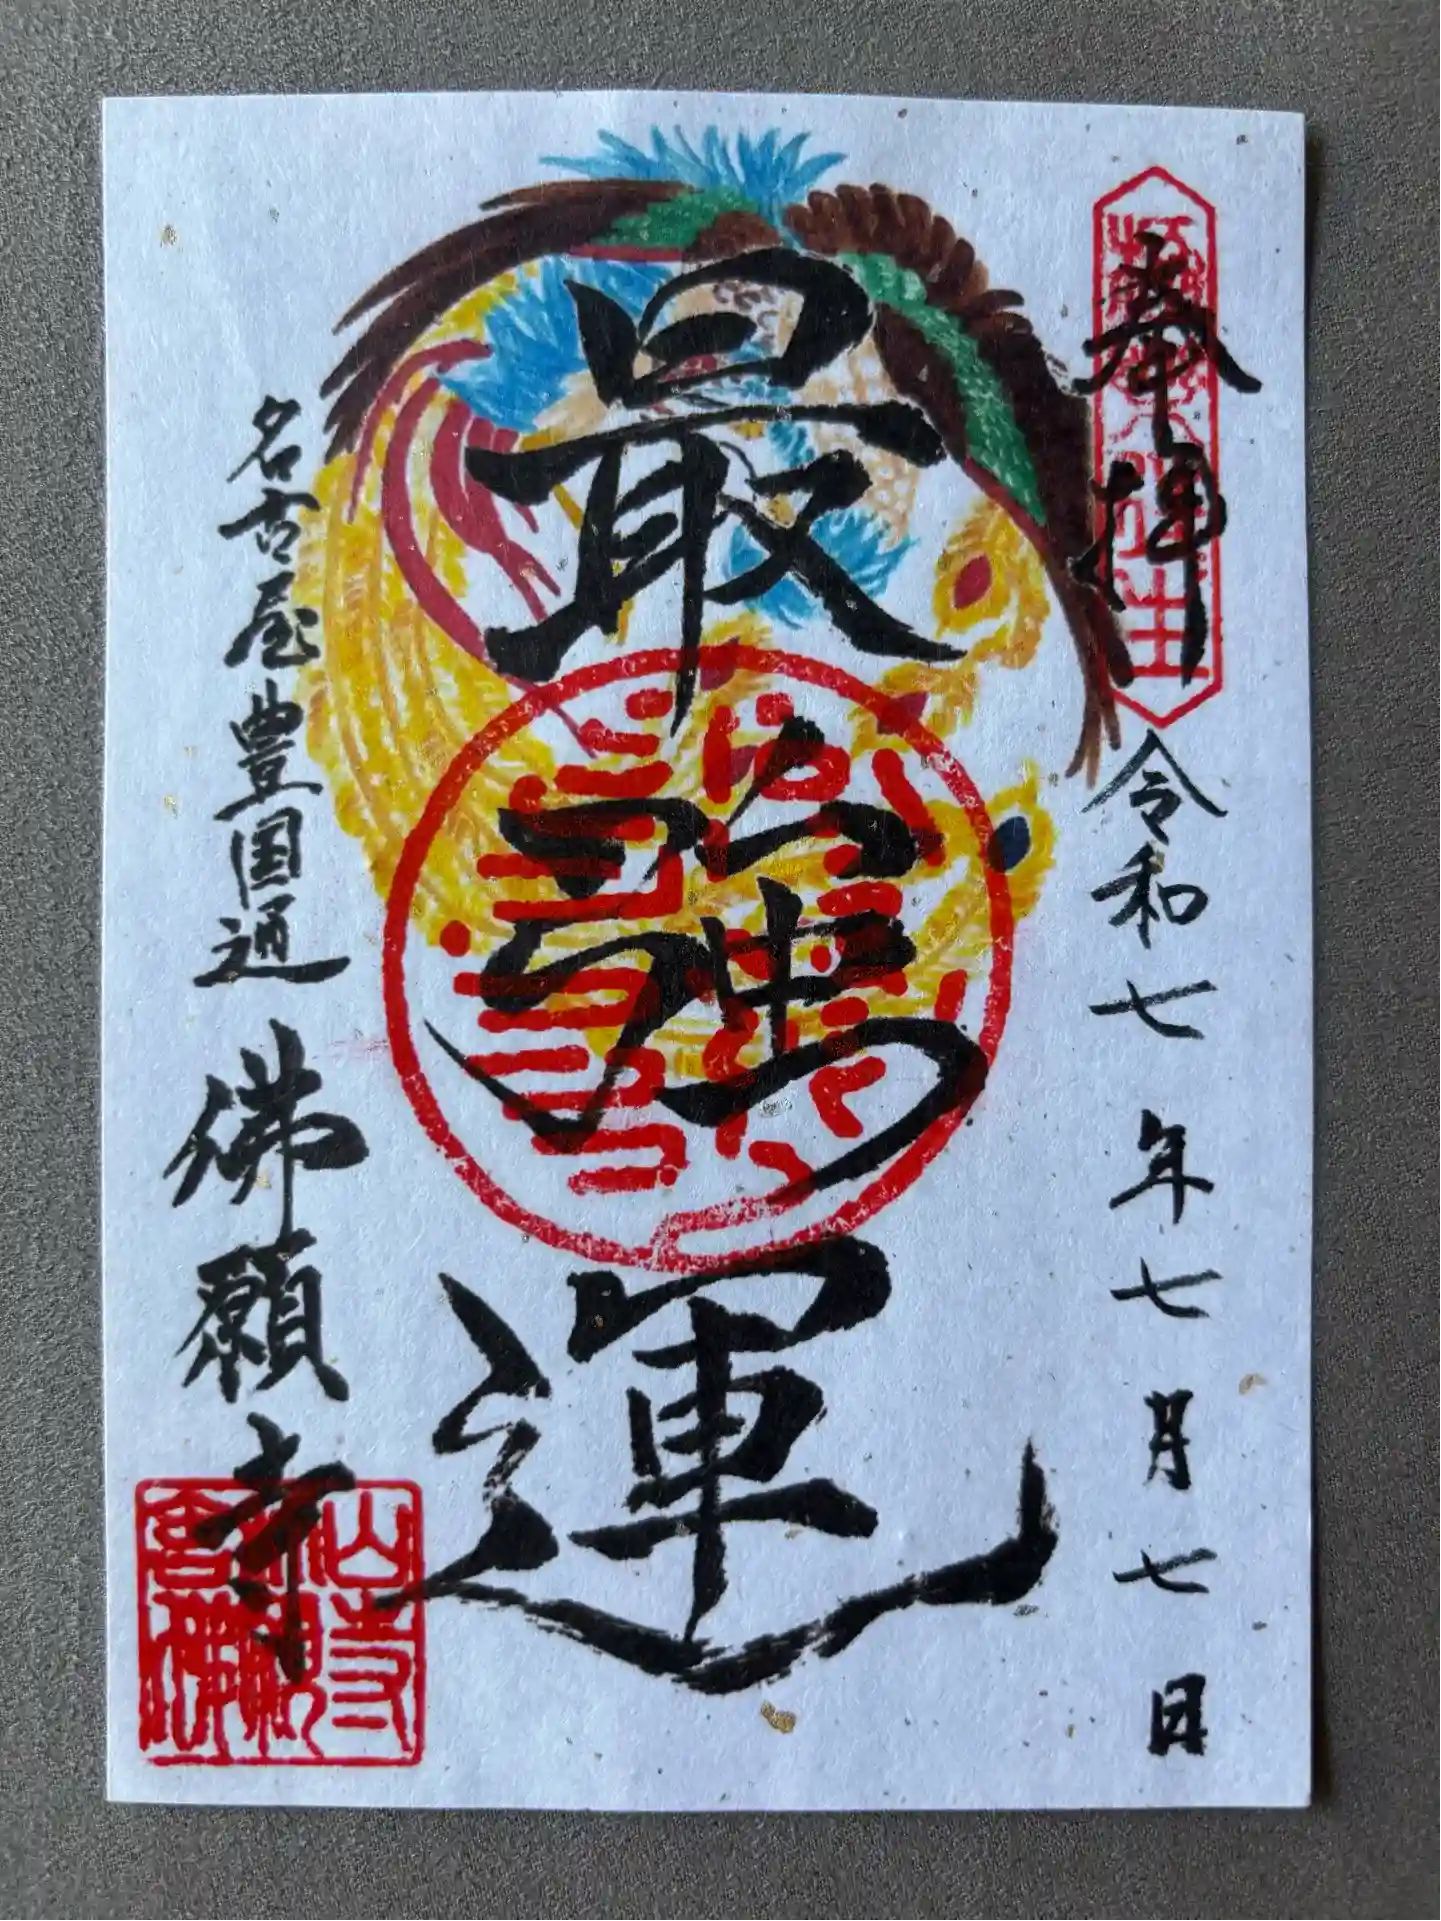 奉拝
令和七年七月七日
最強運
名古屋豊国通 佛願寺